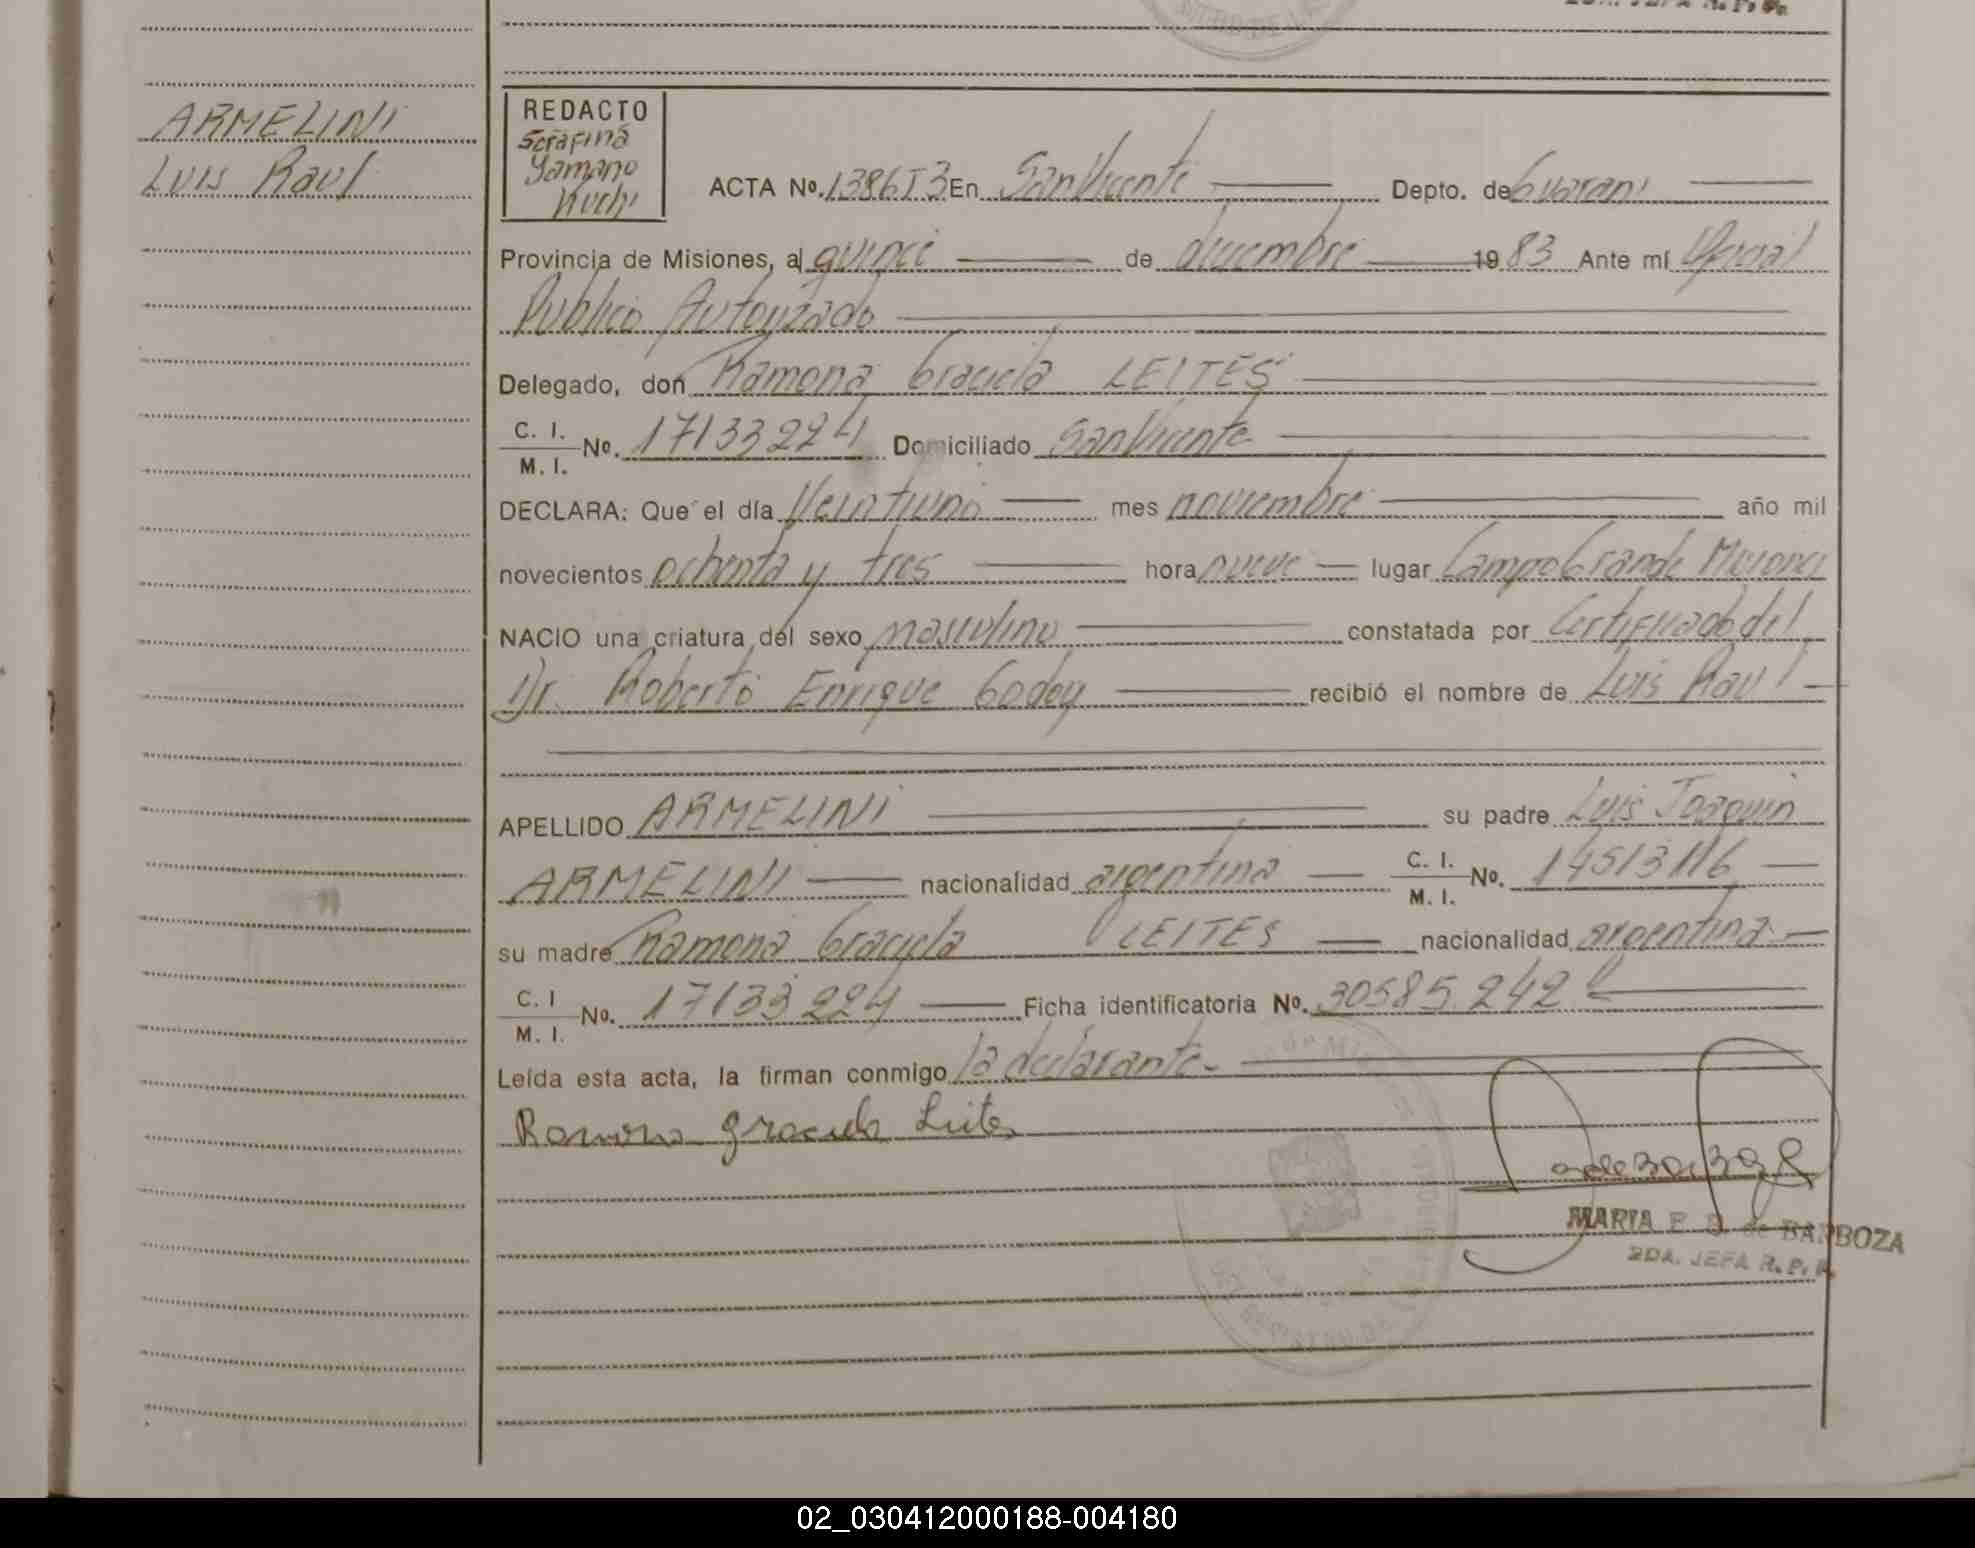 2DA. JEFA R. P. P.
ARMELINI
Luis Raul
REDACTO
Serafina
Yamano
Kuchi
ACTA No. 1386T3 En San Vicente Depto. de Guarani
Provincia de Misiones, al quince de diciembre 1983 Ante mí Oficial
Publico Autorizado
Delegado, don Ramona Graciela LEITES
C. I. / M. I. No. 17133224 Domiciliado San Vicente
DECLARA: Que el día Veintiuno mes noviembre año mil
novecientos ochenta y tres hora nueve lugar Campo Grande Misiones
NACIO una criatura del sexo masculino constatada por Certificado del
Dr. Roberto Enrique Godoy recibió el nombre de Luis Raul
APELLIDO ARMELINI su padre Luis Joaquin
ARMELINI nacionalidad argentina C. I. / M. I. No. 14513116
su madre Ramona Graciela LEITES nacionalidad argentina
C. I / M. I. No. 17133224 Ficha identificatoria No. 30585.242
Leída esta acta, la firman conmigo la declarante-
Ramona Graciela Leites
MARIA E. de BARBOZA
2DA. JEFA R. P. P.
02_030412000188-004180